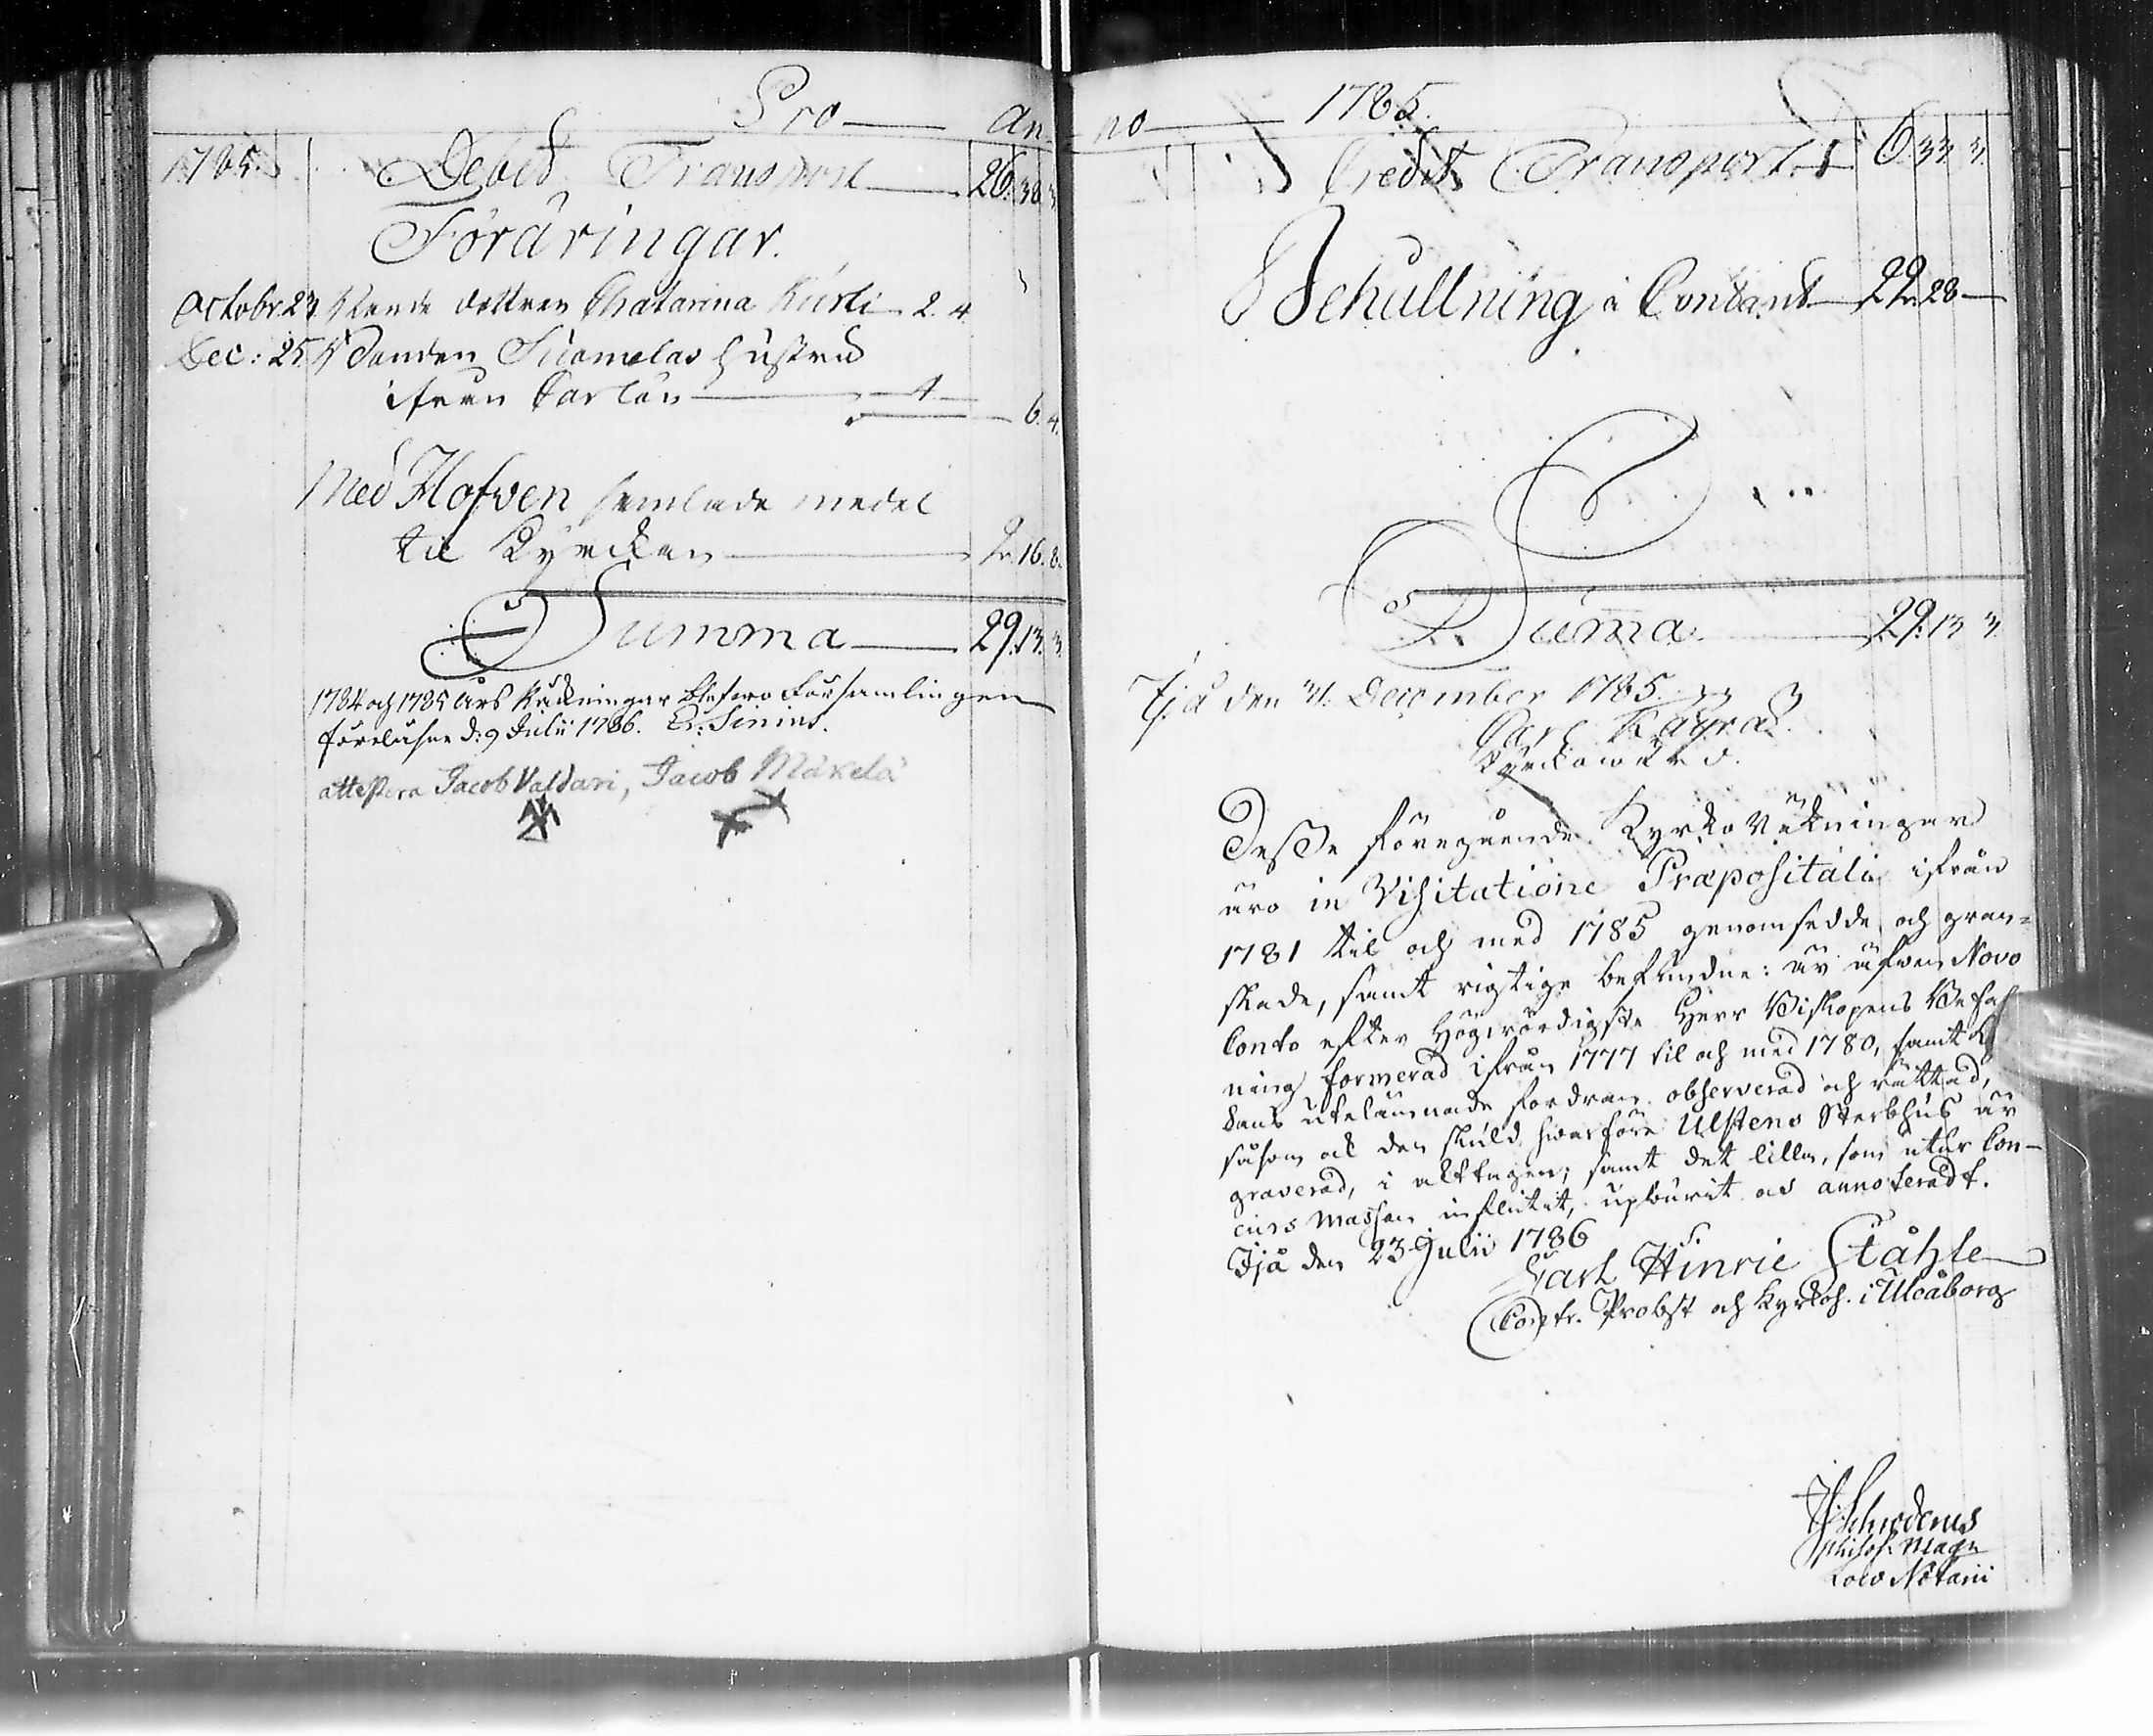 Pro — An
1785. Debet Transport — 26. 38. 3.
Föräringar.
Octobr. 23 Chatarina Kursti — 2. 4.
Dec: 25 Suomelas hustru
ifrån Carlön — 4 —
— 6. 4.
Med Hofven samlade medel
til Kyrckan — 2. 16. 8.
Summa — 29. 13. 3.
1784 och 1785 Års Räkningar blefwo Församlingen
föreläsne d: 9 Julii 1786. Er: Simius.
attestera Jacob Valdari, Jacob Mäkelä
no — 1785.
Credit Transport 6 33 3.
Behållning i Contant — 22. 28 —
Suma — 29. 13 3.
Ijå den 31. December 1785.
Carl Kayra
Kyrckowärd.
Desse föregående Kyrko Räkningar
äro in Visitatione Præpositali ifrån
1781 til och med 1785 genomsedde och gran-
skade, samt rigtige befundne: är äfwen Novo
Conto efter Högwördigste Herr Biskopens Befal
ning formerad ifrån 1777 til och med 1780, samt
dans utelämnade fordran observerad och rättad,
såsom ock den skuld hwarföre Ulstens Sterbhus är
graverad, i akt tagen; samt det lilla, som utur Con-
curs Massan influtit, upburit och annoteradt.
Ijå den 23 Julii 1786
Carl Hinric Ståhle
Contr. Probst och Kyrkoh. i Uloåborg
Philos. Mag.
Loco Notarii